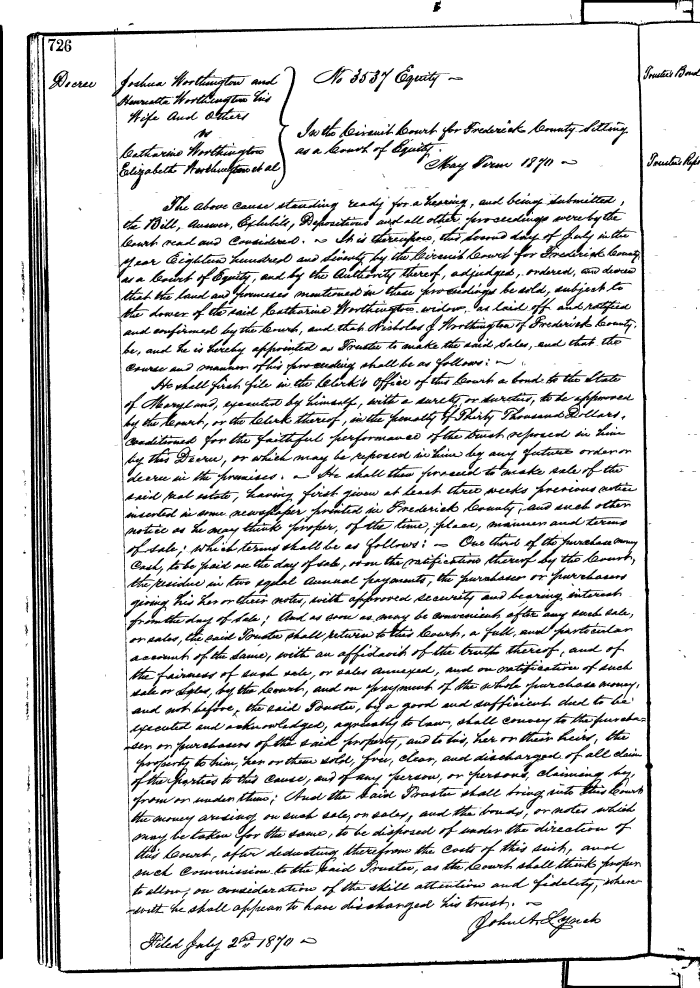 726
Decree
Joshua Worthington and
Henrietta Worthington his
Wife And Others
vs
Catharine Worthington
Elizabeth Worthington et al
No 3537 Equity ~
In the Circuit Court for Frederick County Sitting
as a Court of Equity.
May Term 1870 ~
The above cause standing ready for a hearing, and being submitted,
the Bill, Answer, Exhibits, Depositions and all other proceedings were by the
Court read and considered. ~ It is thereupon, this second day of July in the
year Eighteen hundred and seventy by the Circuit Court for Frederick County
as a Court of Equity, and by the Authority thereof, adjudged, ordered, and decreed
that the land and premises mentioned in these proceedings be sold, subject to
the dower of the said Catharine Worthington, widow, as laid off and ratified
and confirmed by the Court, and that Nicholas J Worthington of Frederick County,
be, and he is hereby appointed a Trustee to make the said sales, and that the
course and manner of his proceeding shall be as follows: ~
He shall first file in the Clerk's Office of this Court a bond to the State
of Maryland, executed by himself, with a surety or sureties, to be approved
by the Court, or the Clerk thereof, in the penalty of Thirty Thousand Dollars,
conditioned for the faithful performance of the trust reposed in him
by this Decree, or which may be reposed in him by any future order or
decree in the premises. ~ He shall then proceed to make sale of the
said real estate, having first given at least three weeks previous notice
inserted in some newspaper printed in Frederick County, and such other
notice as he may think proper, of the time, place, manner and terms
of sale; which terms shall be as follows: ~ One third of the purchase money
Cash, to be paid on the day of sale, or on the ratification thereof by the Court,
the residue in two equal annual payments, the purchaser or purchasers
giving his her or their notes, with approved security and bearing interest
from the day of sale; And as soon as may be convenient after any such sale,
or sales, the said Trustee shall return to this Court, a full, and particular
account of the same, with an affidavit of the truth thereof, and of
the fairness of such sale, or sales annexed, and on ratification of such
sale or sales, by the Court, and on payment of the whole purchase money,
and not before, the said Trustee, by a good and sufficient deed to be
executed and acknowledged, agreeably to law, shall convey to the purcha-
ser or purchasers of the said property, and to his, her or their heirs, the
property to him, her or them sold, free, clear, and discharged of all claim
of the Parties to this cause, and of any person, or persons, claiming by,
from or under them; And the said Trustee shall bring into this Court
the money arising on such sale, or sales, and the bonds, or notes which
may be taken for the same, to be disposed of under the direction of
this Court, after deducting therefrom the costs of this suit, and
such Commission to the said Trustee, as the Court shall think proper
to allow, on consideration of the skill attention and fidelity, where-
with he shall appear to have discharged his trust. ~
John A. Lynch
Filed July 2nd 1870 ~
Trustee's Bond
Trustee's Rep